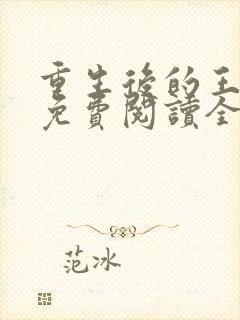 重生後的王
免費閱讀全
范冰